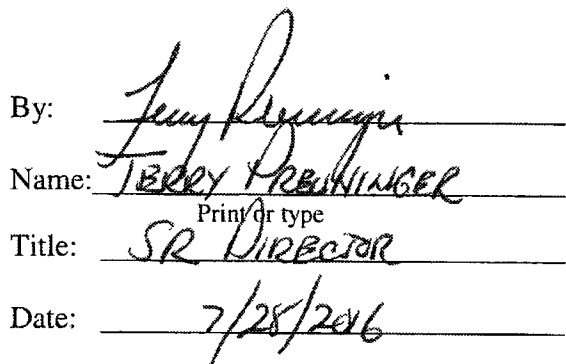 By: Terry Preuninger
Name: TERRY PREUNINGER
Print or type
Title: SR DIRECTOR
Date: 7/28/2016